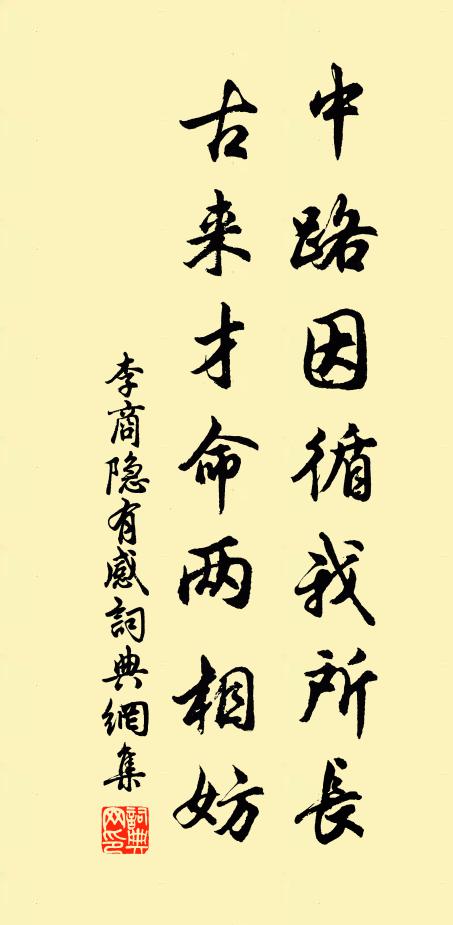 中路因循我所長
古来才命两相妨
李商隐有感詞典網集
詞典网印